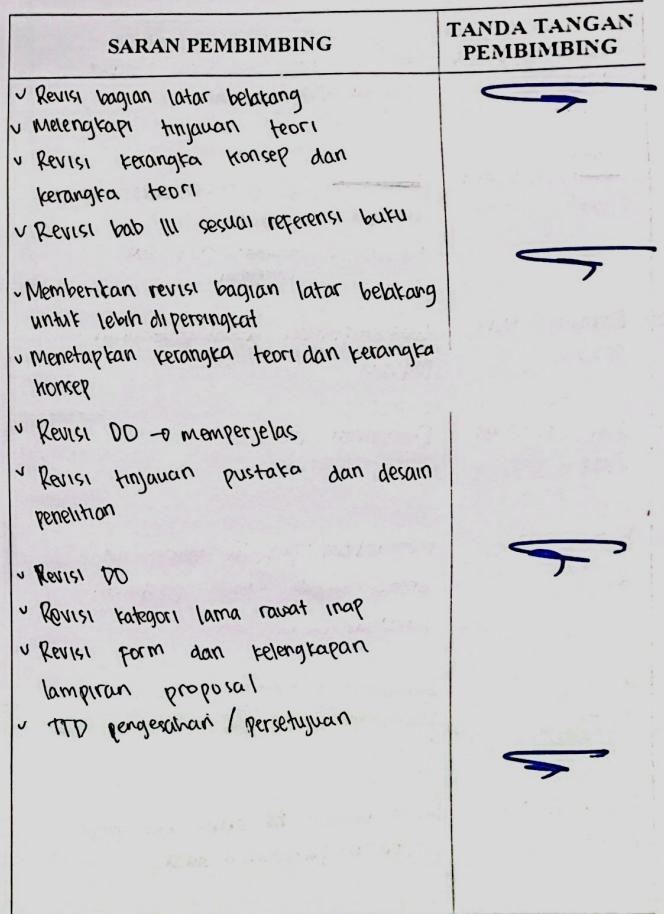 SARAN PEMBIMBING
TANDA TANGAN
PEMBIMBING
v Revisi bagian latar belakang
v Melengkapi tinjauan teori
v Revisi kerangka konsep dan
kerangka teori
v Revisi bab III sesuai referensi buku
v Memberikan revisi bagian latar belakang
untuk lebih dipersingkat
v Menetapkan kerangka teori dan kerangka
konsep
v Revisi DO → memperjelas
v Revisi tinjauan pustaka dan desain
penelitian
v Revisi DO
v Revisi kategori lama rawat inap
v Revisi form dan kelengkapan
lampiran proposal
v TTD pengesahan / persetujuan